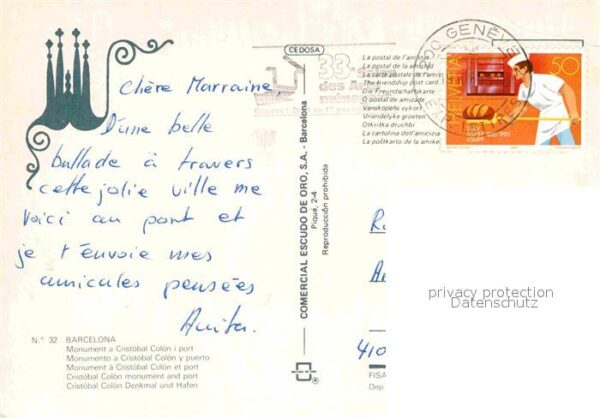 Chère Marraine,
D'une belle
ballade à travers
cette jolie ville me
voici au port et
je t'envoie mes
amicales pensées
Anita.
N.º 32 BARCELONA
Monument a Cristòbal Colòn i port
Monumento a Cristóbal Colón y puerto
Monument à Cristóbal Colón et port
Cristóbal Colón monument and port
Cristóbal Colón Denkmal und Hafen
CEDOSA
COMERCIAL ESCUDO DE ORO, S.A. - Barcelona
Piqué, 2-4
Reproducción prohibida
La postal de l'amistat
La postal de la amistad
La carte postale de l'amitié
The friendship post card
Die Freundschaftskarte
O postal de amizade
Vänskapens vykort
Vriendelijke groeten
Otkritka druchbi
La cartolina dell'amicizia
La poštkarto de la amike
33
des
GENÈVE
HELVETIA
50
1885-1985
410
FISA
Dep.
privacy protection
Datenschutz